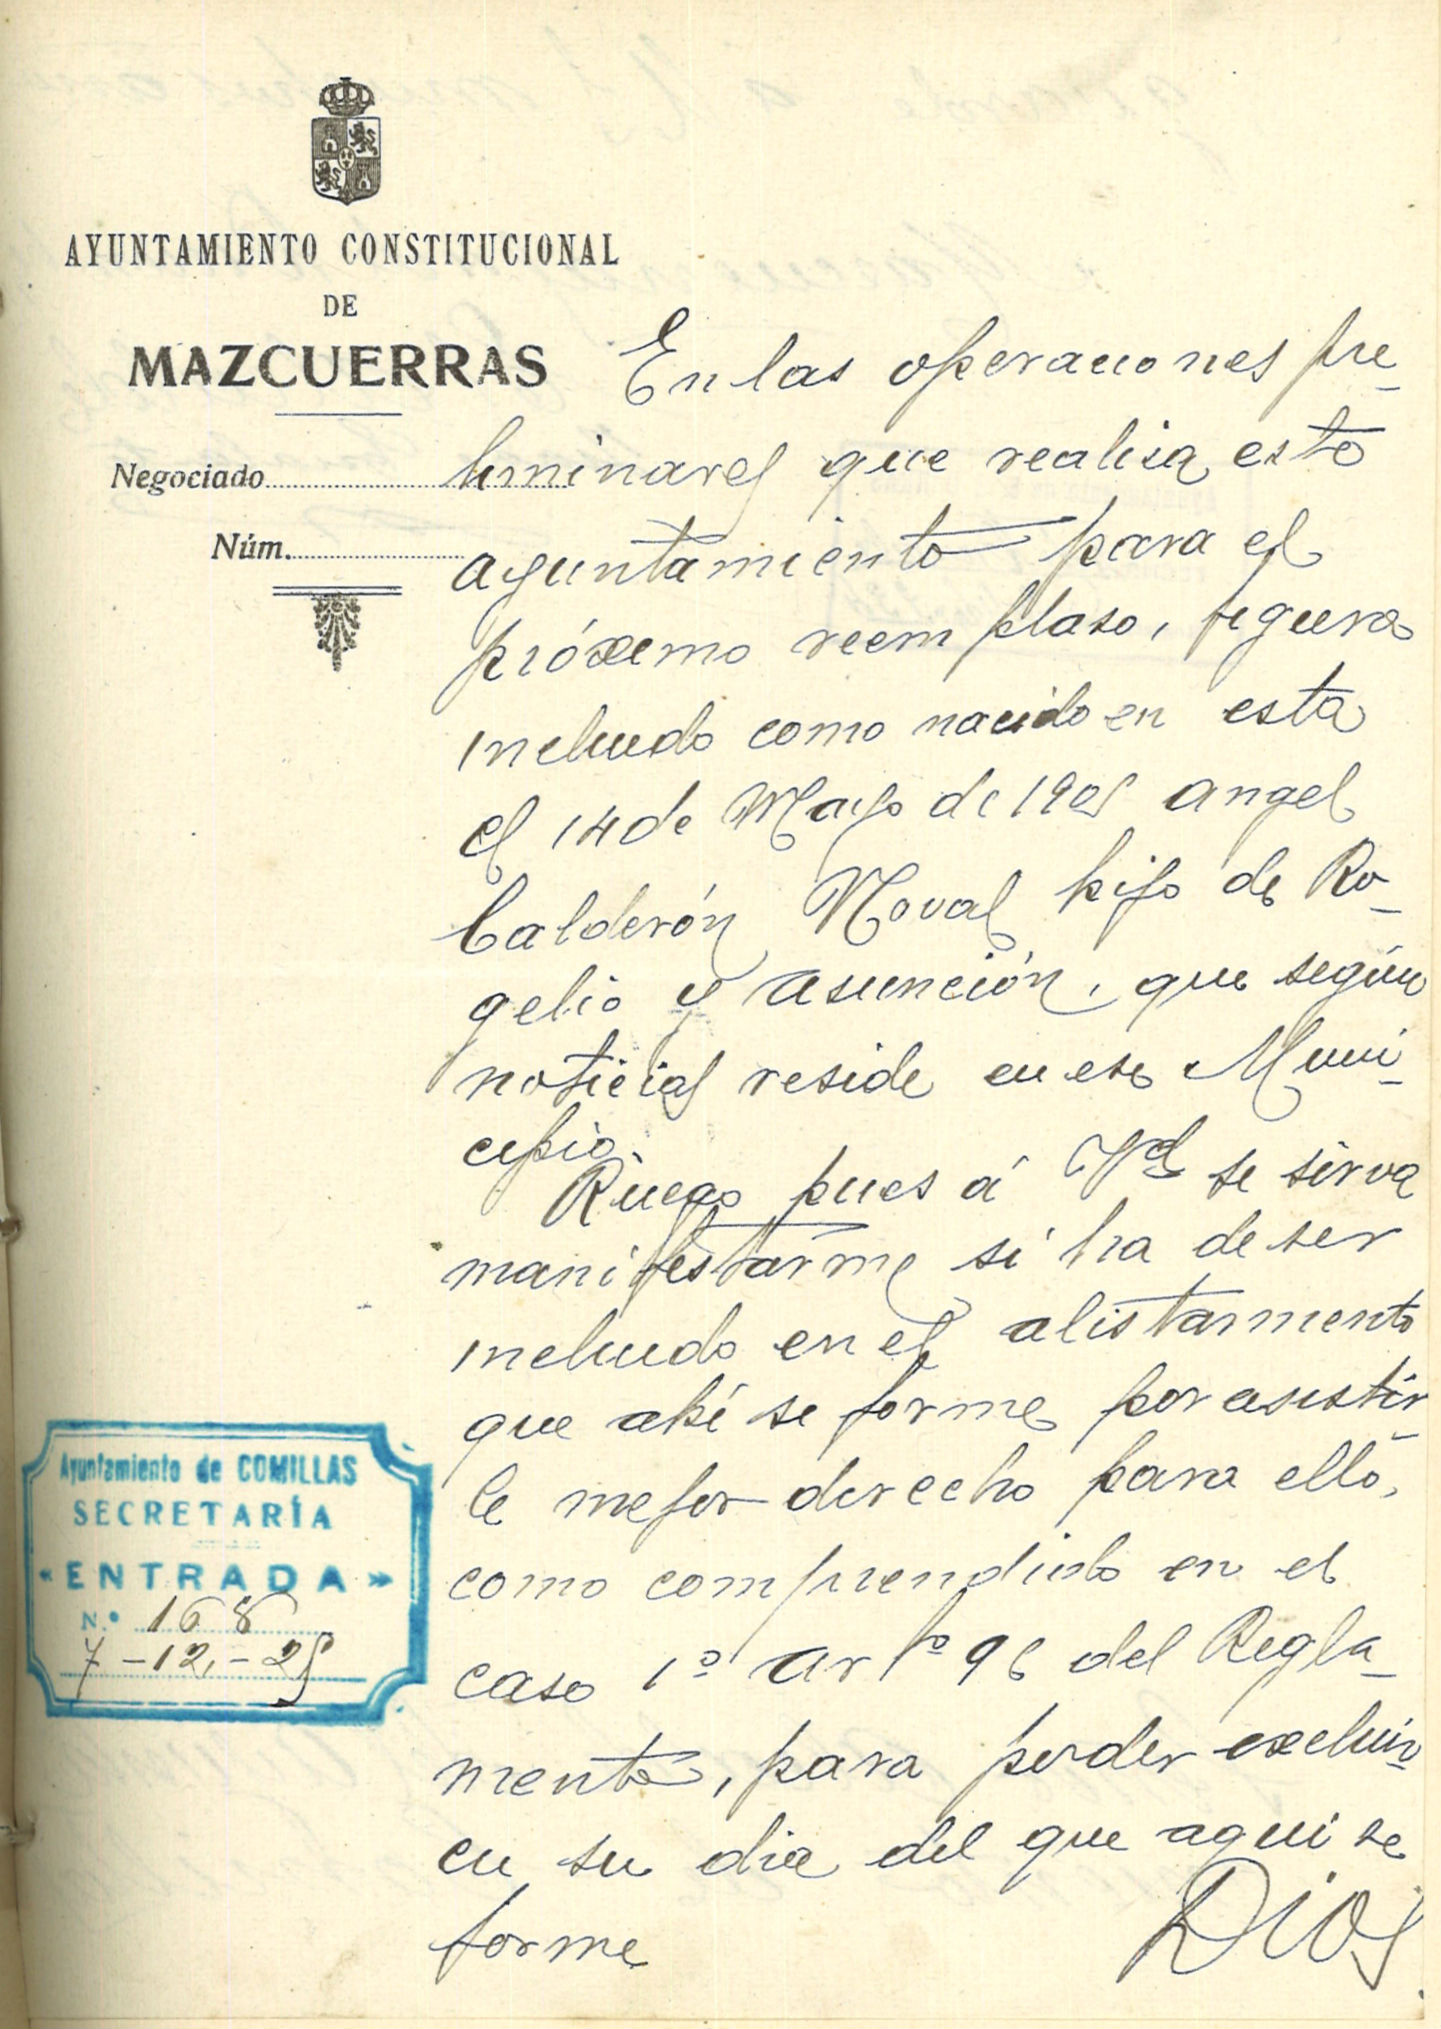 AYUNTAMIENTO CONSTITUCIONAL
DE
MAZCUERRAS
Negociado
Núm.
En las operaciones pre-
liminares que realisa este
ayuntamiento para el
próximo reemplaso, figura
incluido como nacido en esta
el 14 de Mayo de 1905 angel
Calderón Noval hijo de Ro-
gelio y asunción, que según
noticias reside en ese Muni-
cipio.
Ruego pues á Vd se sirva
manifestarme si ha de ser
incluido en el alistamento
que ahí se forme por asistir
le mejor derecho para ello,
como comprendido en el
caso 1º artº 96 del Regla-
mento, para poder excluir
en su dia del que aqui se
forme
Dios
Ayuntamiento de COMILLAS
SECRETARÍA
«ENTRADA»
N.º 168
7-12-25